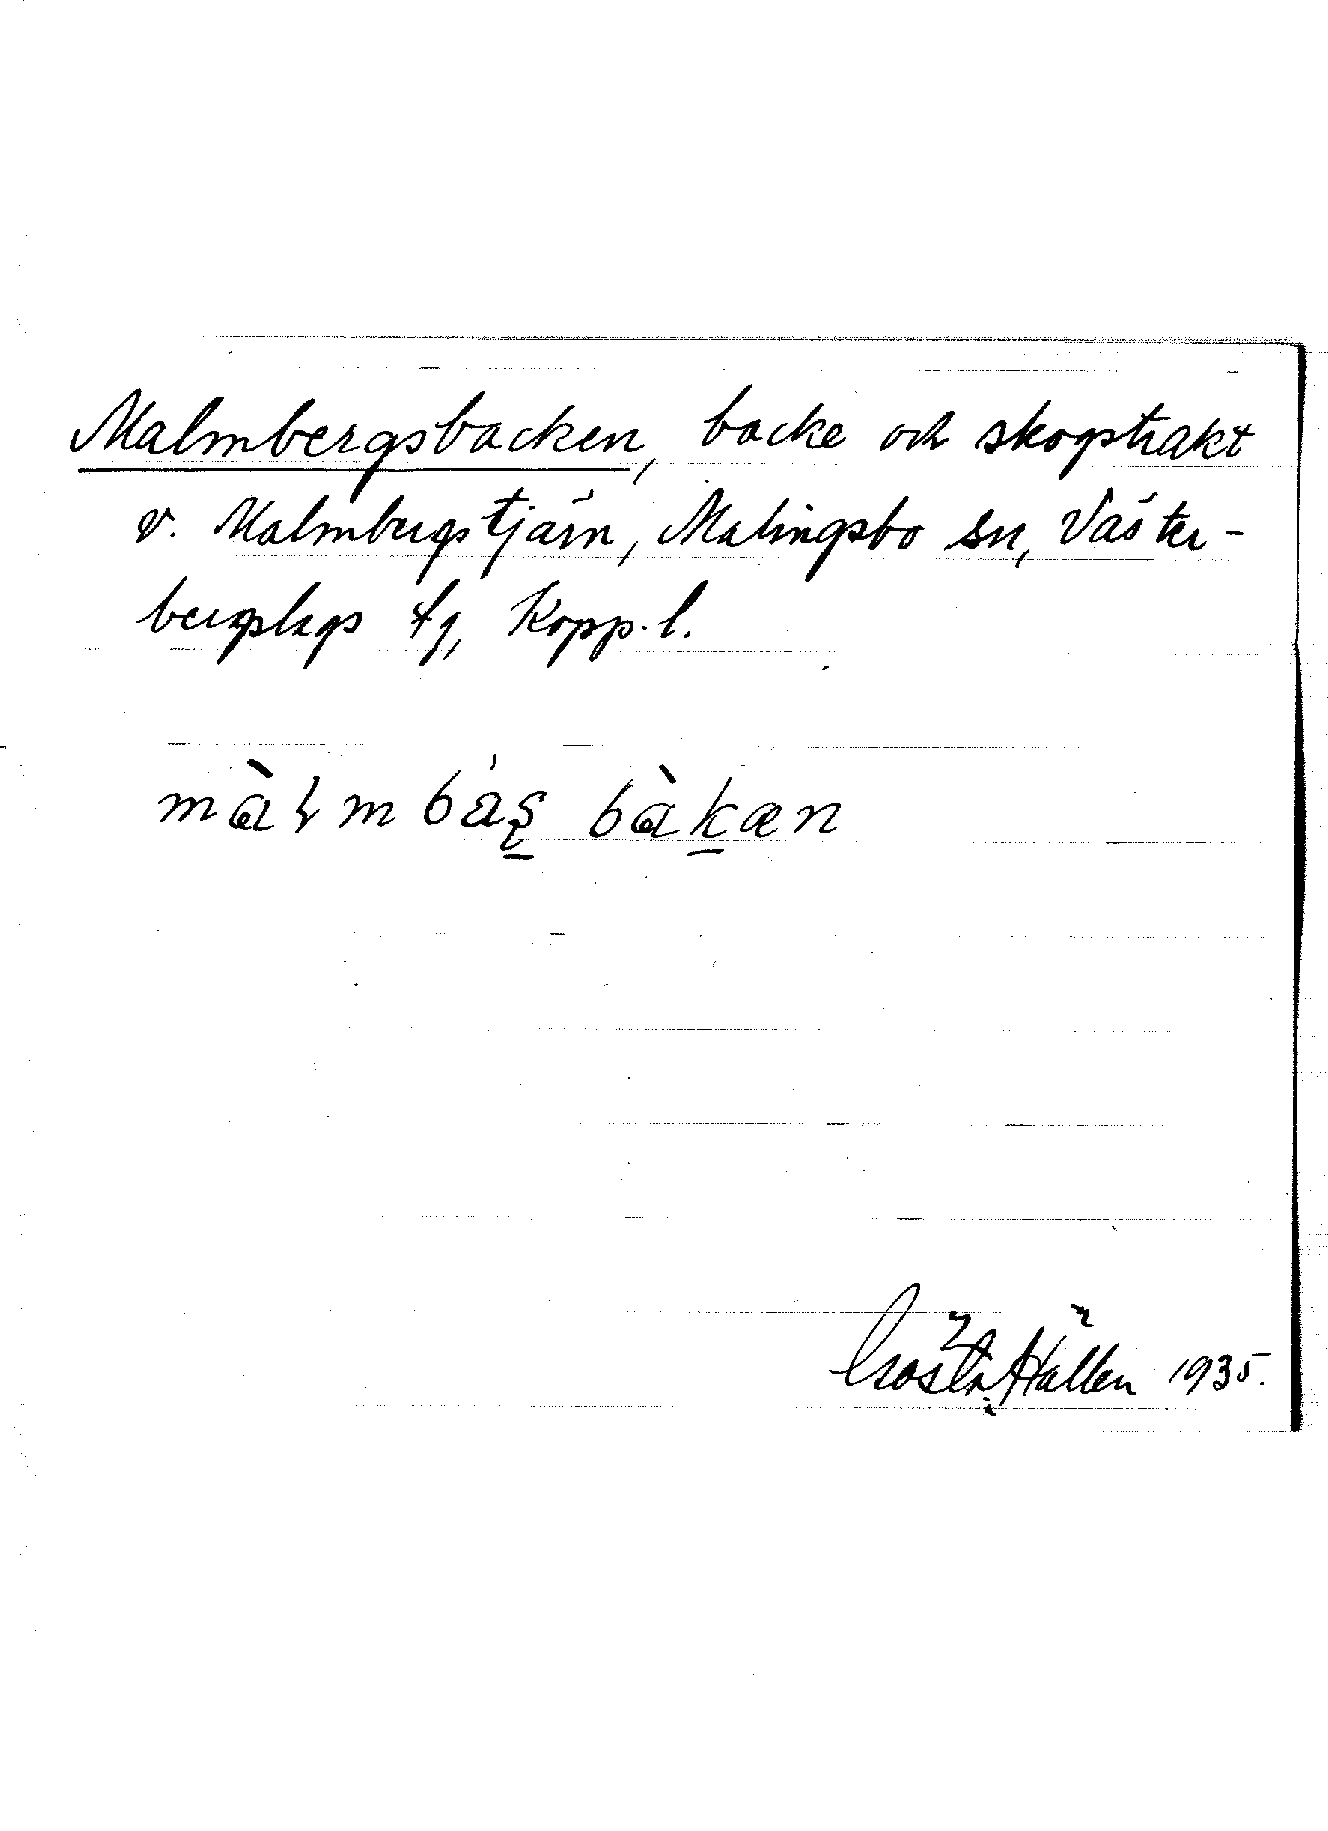 Malmbergsbacken, backe och skogstrakt
v. Malmbergstjärn, Malingsbo sn, Väster-
bergslags tg, Kopp. l.
màɫmbás̨ bàkæn
Gösta Hällen 1935.